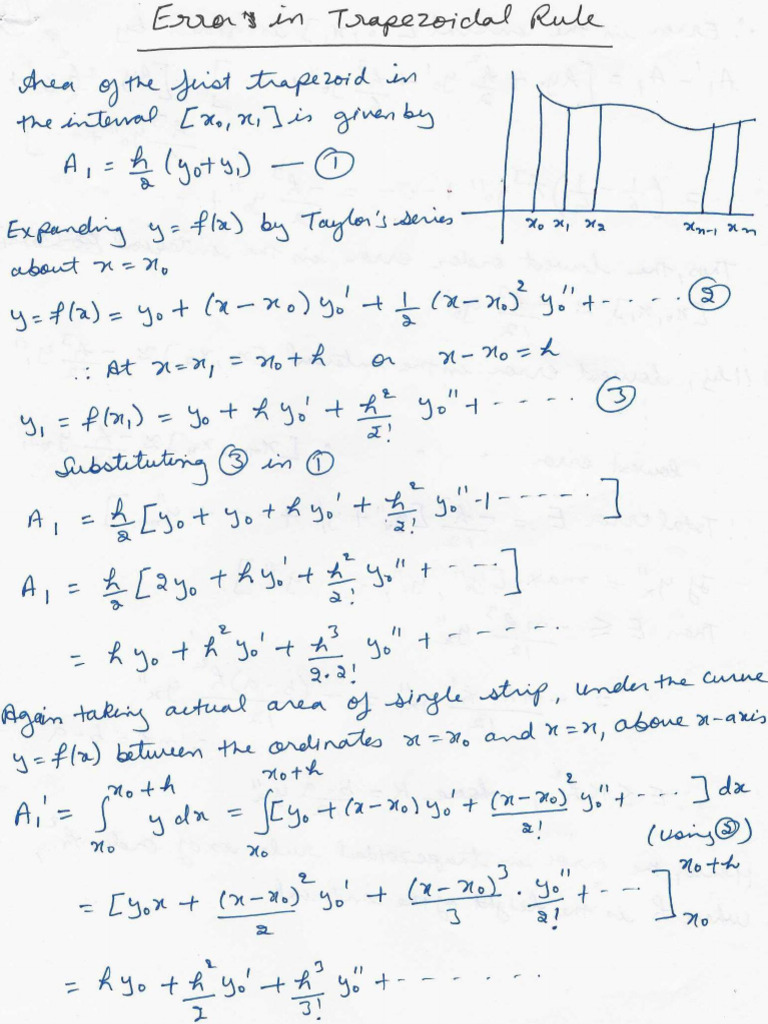 Errors in Trapezoidal Rule
Area of the first trapezoid in
the interval [x₀, x₁] is given by
A₁ = h/2 (y₀+y₁) — ①
x₀ x₁ x₂ xₙ₋₁ xₙ
Expanding y = f(x) by Taylor's series
about x = x₀
y = f(x) = y₀ + (x − x₀) y₀' + 1/2 (x − x₀)² y₀'' + ······ ②
∴ At x = x₁ = x₀ + h or x − x₀ = h
y₁ = f(x₁) = y₀ + h y₀' + h²/2! y₀'' + ····· ③
Substituting ③ in ①
A₁ = h/2 [y₀ + y₀ + h y₀' + h²/2! y₀'' + ······]
A₁ = h/2 [2y₀ + h y₀' + h²/2! y₀'' + ···]
= h y₀ + h² y₀'/2 + h³/2·2! y₀'' + ······
Again taking actual area of single strip, under the curve
y = f(x) between the ordinates x = x₀ and x = x, above x-axis
A₁' = ∫_{x₀}^{x₀+h} y dx = ∫_{x₀}^{x₀+h} [y₀ + (x − x₀) y₀ + (x − x₀)²/2! y₀'' + ····] dx
(using ②)
= [y₀x + (x − x₀)²/2 y₀' + (x − x₀)³/3 · y₀''/2! + ···]_{x₀}^{x₀+h}
= h y₀ + h²/2 y₀' + h³/3! y₀'' + ·······